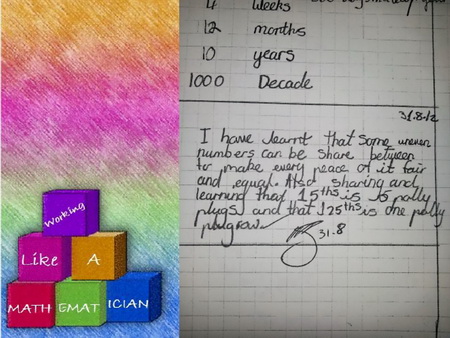 Working
Like A
MATH EMAT ICIAN
4 weeks
12 months
10 years
1000 Decade
31.8.12
I have learnt that some uneven
numbers can be share between
to make every peace of it fair
and equal. Also sharing and
learning that is 15 polly
plugs and that is one polly
31.8